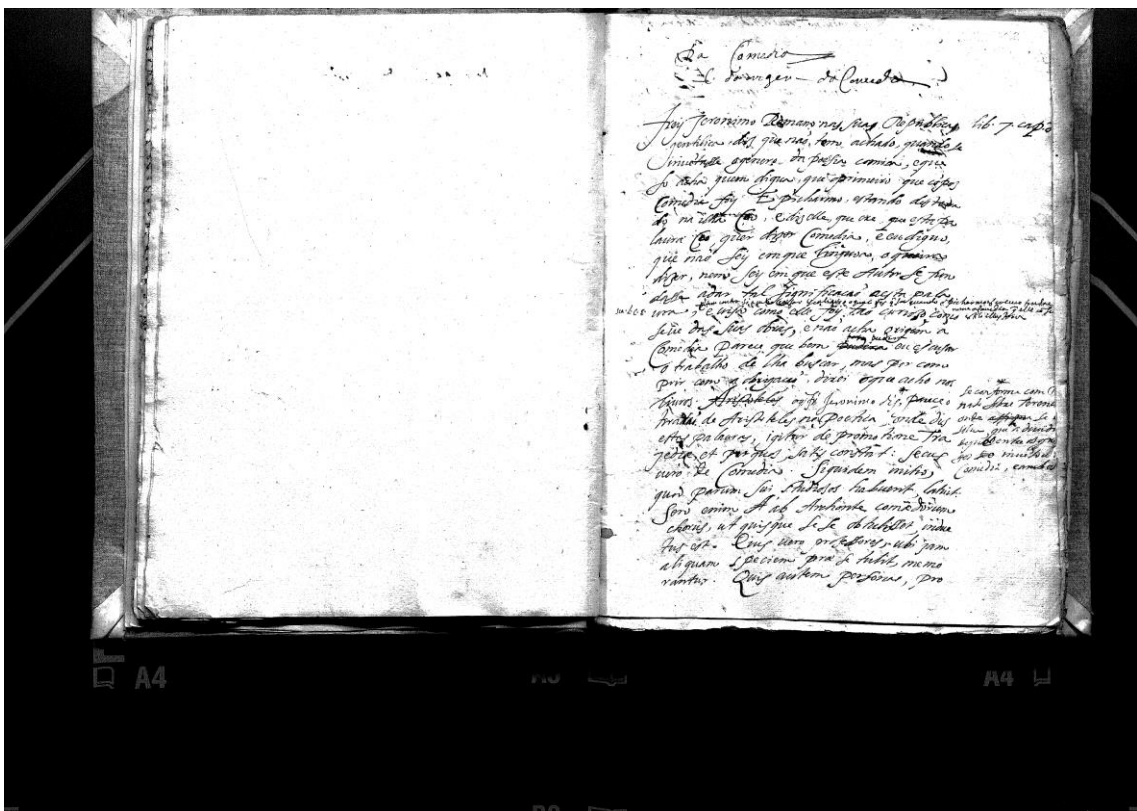 Da Comedia
E da origen da Comedia
Frey Jeronimo Romano nas suas Republicas lib. 7. cap.
gentilica diz que não tem achado, quando se
inventasse o genere da poesia comica, e que
so acha quem digua, que o primeiro que cōpos
Comedia foy Epicharmo, estando desterra
do na illa Coo, e diz elle, que cre que esta pa
laura Coo, quer dizer Comedia, e eu diguo,
que não sey em que linguoa, o queira
dizer, nem sey em que este Autor se fun
dasse a dar tal significacaõ a esta pala
ura, e visto como elle foy tão curioso como
se ve das suas obras, e não acha origem a
Comedia parece que bem eu escusar
o trabalho de lha buscar, mas por com
prir com a obrigação, direi o que acho nos
livros. Aristoteles o q̃ Jeronimo diz, parece
tirado de Aristoteles na Poetica onde diz
estas palavras, igitur de promotione Tra
gediæ et per quos, satis constat: secus
vero de Comedia. Siquidem initio,
quod parum sui studiosos habuerit, latuit.
Sero enim A ab Archonte comædorum
choris, ut quisque se se obtulisset, indu
tus est. Eius vero professores, ubi jam
aliquam speciem præ se tulit, memo
rantur. Quis autem personas, pro
se conforma com
Comedia,